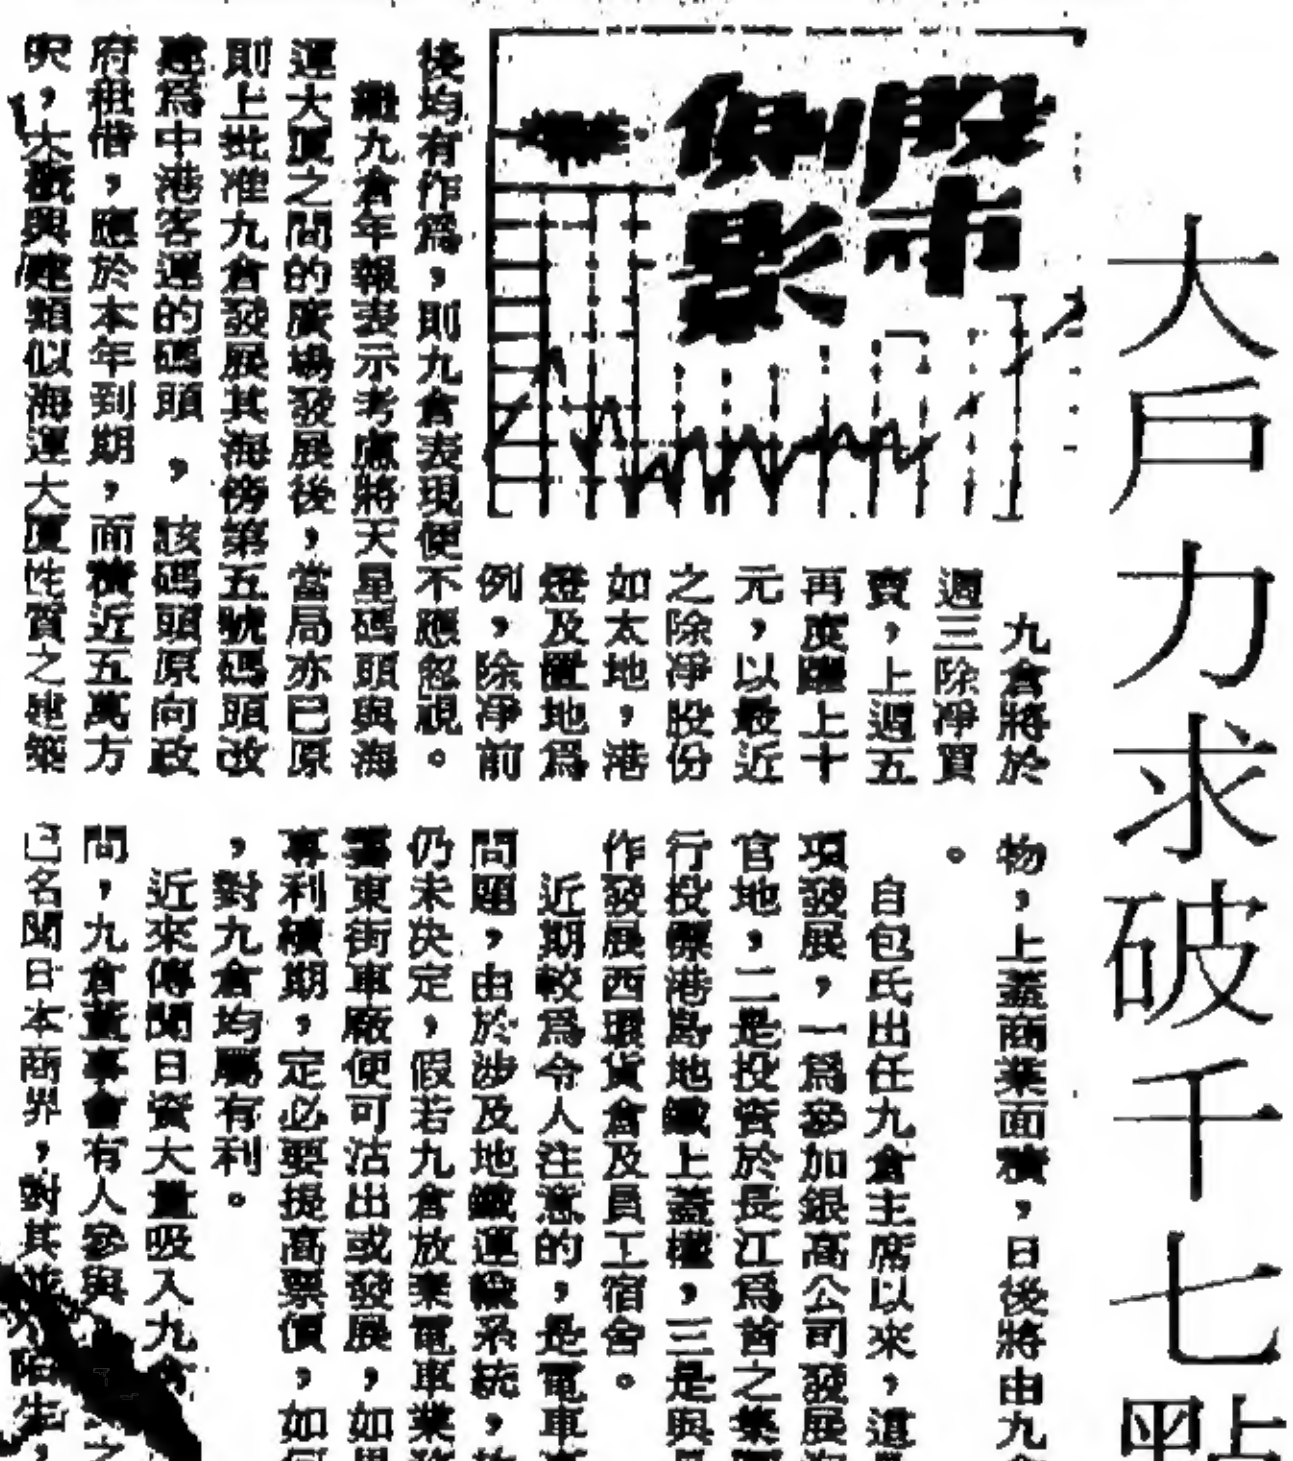 大戶力求破千七點
股市
側影
九倉將於
週三除淨買
賣，上週五
再度躍上十
元，以最近
之除淨股份
如太地，港
燈及置地為
例，除淨前
後均有作為，則九倉表現便不應忽視。
繼九倉年報表示考慮將天星碼頭與海
運大廈之間的廣場發展後，當局亦已原
則上批准九倉發展其海傍第五號碼頭改
建為中港客運的碼頭，該碼頭原向政
府租借，應於本年到期，而積近五萬方
呎，大概興建類似海運大廈性質之建築
物，上蓋商業面積，日後將由九
。
自包氏出任九倉主席以來，這
項發展，一為參加銀高公司發展
官地，二是投資於長江為首之集
行投標港島地鐵上蓋權，三是與
作發展西環貨倉及員工宿舍。
近期較為令人注意的，是電車
問題，由於涉及地鐵運輸系統，
仍未決定，假若九倉放棄電車業
舊東街車廠便可沽出或發展，如
專利續期，定必要提高票價，如
，對九倉均屬有利。
近來傳聞日資大量吸入九倉
問，九倉董事會有人參與
已名聞日本商界，對其並不陌生，